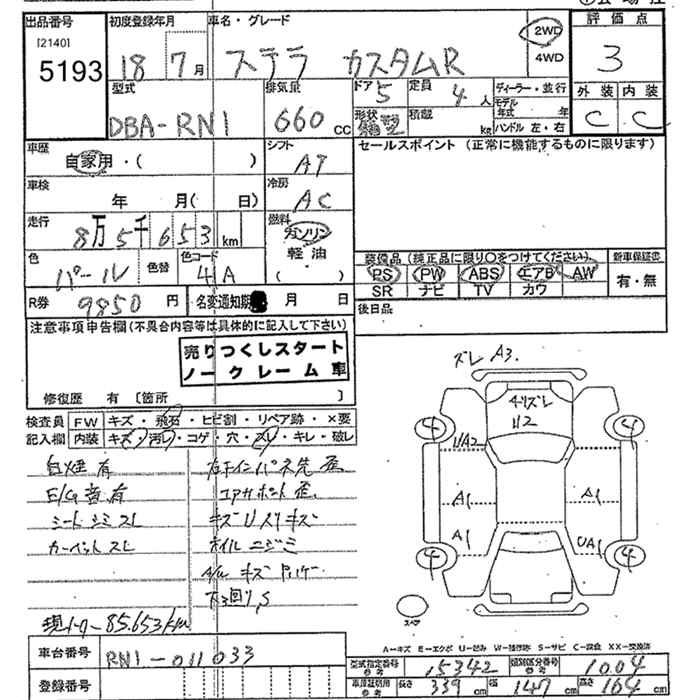 出品番号 初度登録年月 車名・グレード 評価点
[2140] 5193 18 7月 ステラ カスタムR 2WD 4WD 3
型式 排気量 ドア 5 定員 4人 ディーラー・並行 外装 内装
DBA-RN1 660cc 形状 積載 kg モデル年式 年 C C
ハンドル 左・右
車歴 シフト セールスポイント (正常に機能するものに限ります)
自家用・( ) AT
車検 年 月( 日) 冷房 AC
走行 8万5千653km 燃料 ガソリン 軽油 ( )
色 パール 色替 色コード 4A
装備品 (純正品に限り〇をつけてください) 新車保証書
PS PW ABS エアB AW 有・無
SR ナビ TV カワ
R券 9850円 名変通知期 月 日
後日品
注意事項申告欄(不具合内容等は具体的に記入して下さい)
売りつくしスタート
ノークレーム車
修復歴 有 [箇所 ]
検査員記入欄 FW キズ・飛石・ヒビ割・リペア跡・×要
内装 キズ・汚レ・コゲ・穴・スレ・キレ・破レ
白煙 有
E/G音 有
シートシミスレ
カーペットスレ
コアサポート 歪
キズUスリキズ
ホイルニジミ
下回りS
現メーター85.653km
ズレ A3.
U2
UA2
4 4
A1 A1
A1 UA1
4 4
スペア
A-キズ E-エクボ U-凹み W-補修跡 S-サビ C-腐食 XX-交換済
車台番号 RN1-011033
登録番号
型式指定番号 参考 15342 類別区分番号 参考 1004
車庫証明用 参考 長さ 339cm 幅 147cm 高さ 164cm